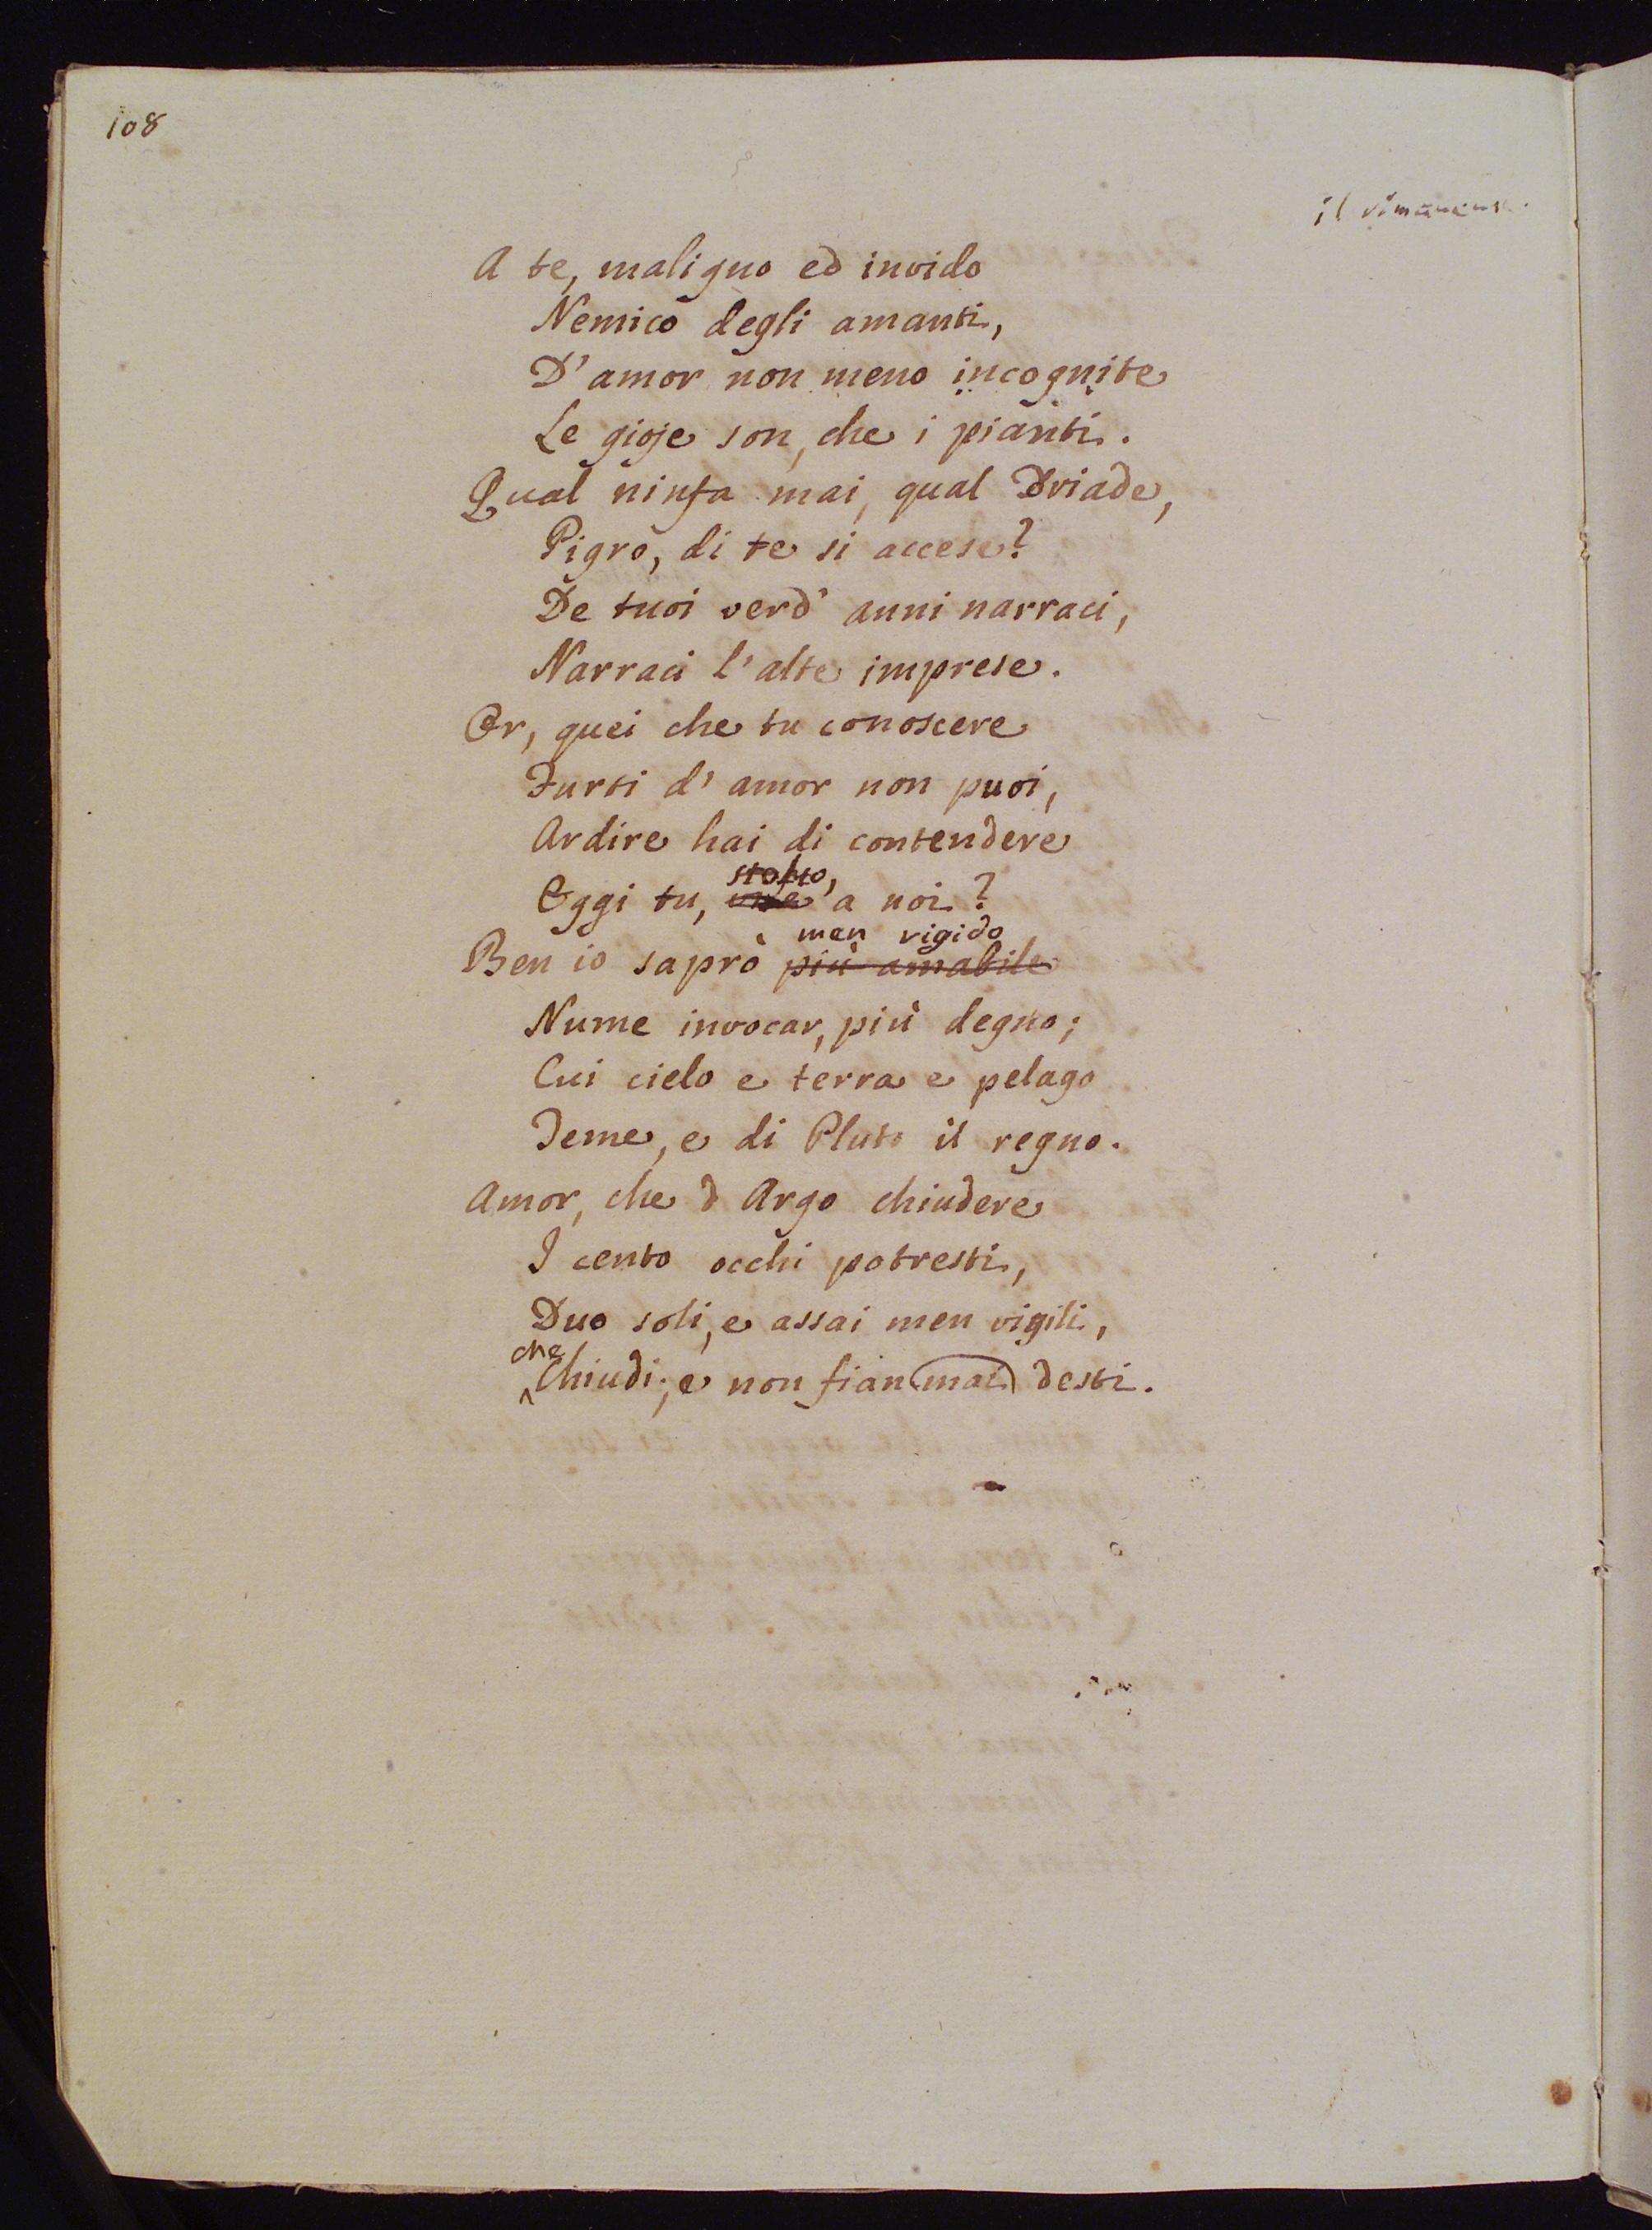 108
il
A te, maligno ed invido
Nemico degli amanti,
D'amor non meno incognite
Le gioje son, che i pianti.
Qual ninfa mai, qual Driade,
Pigro, di te si accese?
De tuoi verd' anni narraci,
Narraci l'alte imprese.
Or, quei che tu conoscere
Furti d'amor non puoi,
Ardire hai di contendere
stolto,
Oggi tu, a noi?
men rigido
Ben io saprò più amabile
Nume invocar, più degno;
Cui cielo e terra e pelago
Teme, e di Pluto il regno.
Amor, che d Argo chiudere
I cento occhi potresti,
Duo soli, e assai men vigili,
che
Chiudi; e non fian mai desti.